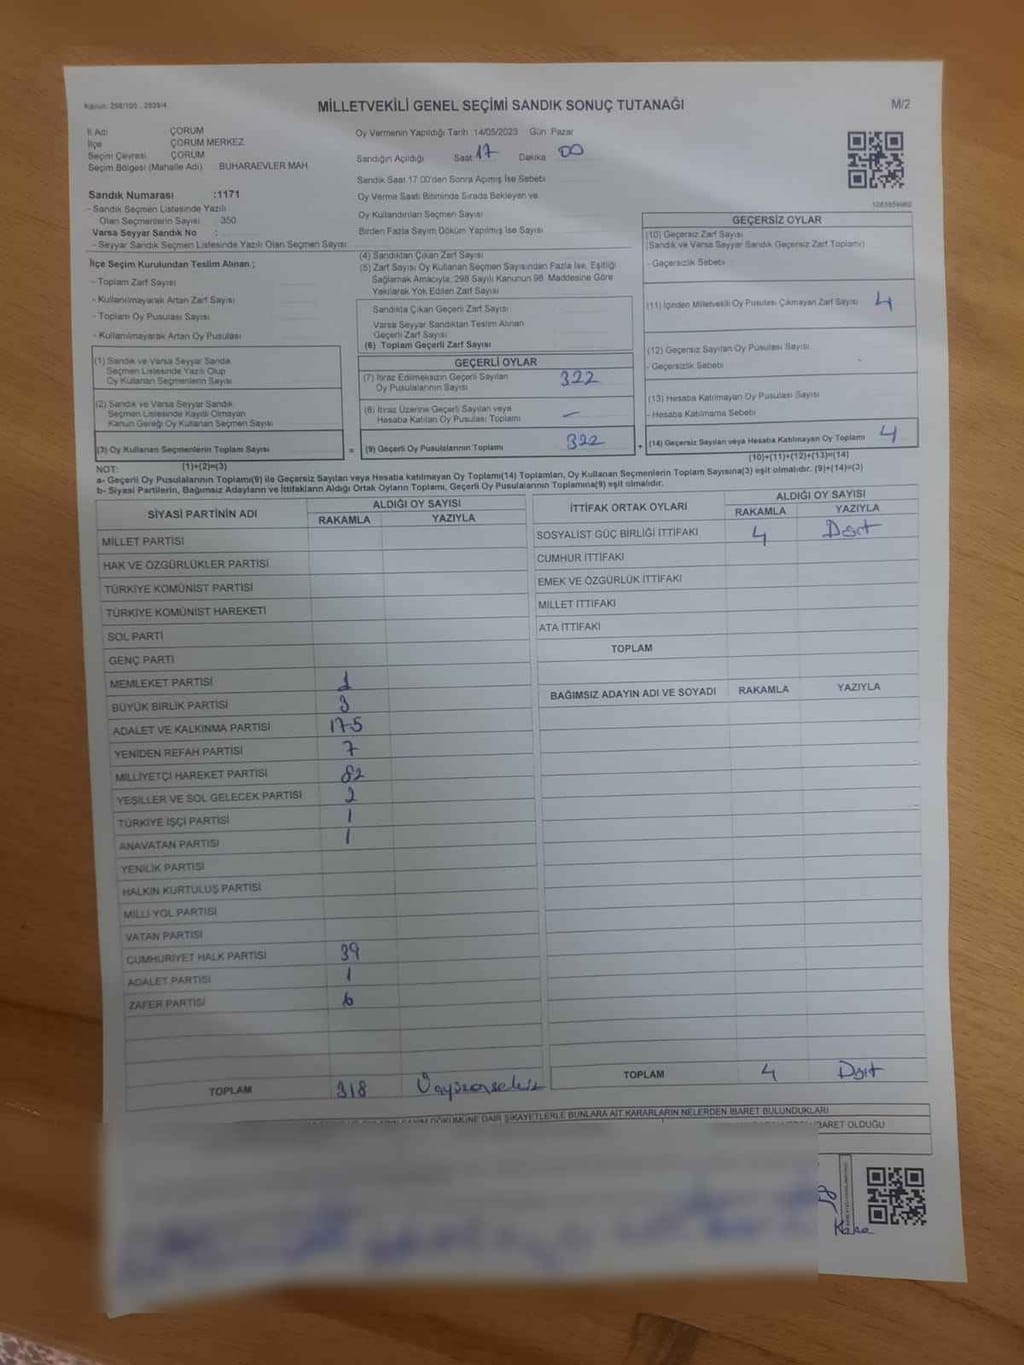 Kanun: 298/105 , 2839/4
MİLLETVEKİLİ GENEL SEÇİMİ SANDIK SONUÇ TUTANAĞI
M/2
İl Adı ÇORUM
İlçe ÇORUM MERKEZ
Seçim Çevresi ÇORUM
Seçim Bölgesi (Mahalle Adı) BUHARAEVLER MAH
Sandık Numarası :1171
- Sandık Seçmen Listesinde Yazılı
Olan Seçmenlerin Sayısı 350
Varsa Seyyar Sandık No :
- Seyyar Sandık Seçmen Listesinde Yazılı Olan Seçmen Sayısı
Oy Vermenin Yapıldığı Tarih 14/05/2023 Gün Pazar
Sandığın Açıldığı Saat 17 Dakika 00
Sandık Saat 17.00'den Sonra Açılmış İse Sebebi
Oy Verme Saati Bitiminde Sırada Bekleyen ve
Oy Kullandırılan Seçmen Sayısı
Birden Fazla Sayım Döküm Yapılmış İse Sayısı
İlçe Seçim Kurulundan Teslim Alınan ;
- Toplam Zarf Sayısı
- Kullanılmayarak Artan Zarf Sayısı
- Toplam Oy Pusulası Sayısı
- Kullanılmayarak Artan Oy Pusulası
(1) Sandık ve Varsa Seyyar Sandık
Seçmen Listesinde Yazılı Olup
Oy Kullanan Seçmenlerin Sayısı
(2) Sandık ve Varsa Seyyar Sandık
Seçmen Listesinde Kayıtlı Olmayan
Kanun Gereği Oy Kullanan Seçmen Sayısı
(3) Oy Kullanan Seçmenlerin Toplam Sayısı
(1)+(2)=(3)
(4) Sandıktan Çıkan Zarf Sayısı
(5) Zarf Sayısı Oy Kullanan Seçmen Sayısından Fazla İse, Eşitliği
Sağlamak Amacıyla, 298 Sayılı Kanunun 98. Maddesine Göre
Yakılarak Yok Edilen Zarf Sayısı
Sandıkta Çıkan Geçerli Zarf Sayısı
Varsa Seyyar Sandıktan Teslim Alınan
Geçerli Zarf Sayısı
(6) Toplam Geçerli Zarf Sayısı
GEÇERLİ OYLAR
(7) İtiraz Edilmeksizin Geçerli Sayılan
Oy Pusulalarının Sayısı 322
(8) İtiraz Üzerine Geçerli Sayılan veya
Hesaba Katılan Oy Pusulası Toplamı –
= (9) Geçerli Oy Pusulalarının Toplamı 322 +
GEÇERSİZ OYLAR
(10) Geçersiz Zarf Sayısı
(Sandık ve Varsa Seyyar Sandık Geçersiz Zarf Toplamı)
- Geçersizlik Sebebi
(11) İçinden Milletvekili Oy Pusulası Çıkmayan Zarf Sayısı 4
(12) Geçersiz Sayılan Oy Pusulası Sayısı
- Geçersizlik Sebebi
(13) Hesaba Katılmayan Oy Pusulası Sayısı
- Hesaba Katılmama Sebebi
(14) Geçersiz Sayılan veya Hesaba Katılmayan Oy Toplamı 4
(10)+(11)+(12)+(13)=(14)
NOT:
a- Geçerli Oy Pusulalarının Toplamı(9) ile Geçersiz Sayılan veya Hesaba katılmayan Oy Toplamı(14) Toplamları, Oy Kullanan Seçmenlerin Toplam Sayısına(3) eşit olmalıdır. (9)+(14)=(3)
b- Siyasi Partilerin, Bağımsız Adayların ve İttifakların Aldığı Ortak Oyların Toplamı, Geçerli Oy Pusulalarının Toplamına(9) eşit olmalıdır.
SİYASİ PARTİNİN ADI ALDIĞI OY SAYISI
RAKAMLA YAZIYLA
MİLLET PARTİSİ
HAK VE ÖZGÜRLÜKLER PARTİSİ
TÜRKİYE KOMÜNİST PARTİSİ
TÜRKİYE KOMÜNİST HAREKETİ
SOL PARTİ
GENÇ PARTİ
MEMLEKET PARTİSİ 1
BÜYÜK BİRLİK PARTİSİ 3
ADALET VE KALKINMA PARTİSİ 175
YENİDEN REFAH PARTİSİ 7
MİLLİYETÇİ HAREKET PARTİSİ 82
YEŞİLLER VE SOL GELECEK PARTİSİ 2
TÜRKİYE İŞÇİ PARTİSİ 1
ANAVATAN PARTİSİ 1
YENİLİK PARTİSİ
HALKIN KURTULUŞ PARTİSİ
MİLLİ YOL PARTİSİ
VATAN PARTİSİ
CUMHURİYET HALK PARTİSİ 39
ADALET PARTİSİ 1
ZAFER PARTİSİ 6
TOPLAM 318 Üçyüzonsekiz
İTTİFAK ORTAK OYLARI ALDIĞI OY SAYISI
RAKAMLA YAZIYLA
SOSYALİST GÜÇ BİRLİĞİ İTTİFAKI 4 Dört
CUMHUR İTTİFAKI
EMEK VE ÖZGÜRLÜK İTTİFAKI
MİLLET İTTİFAKI
ATA İTTİFAKI
TOPLAM
BAĞIMSIZ ADAYIN ADI VE SOYADI RAKAMLA YAZIYLA
TOPLAM 4 Dört
DÖKÜMÜNE DAİR ŞİKAYETLERLE BUNLARA AİT KARARLARIN NELERDEN İBARET BULUNDUKLARI
İBARET OLDUĞU